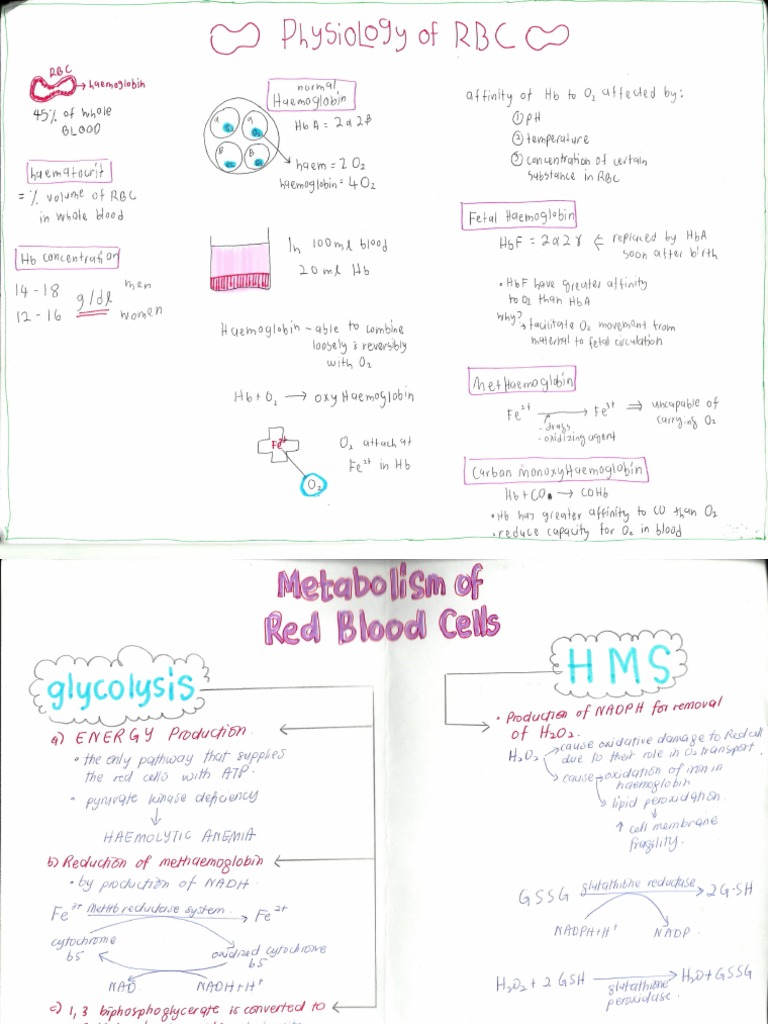 Physiology of RBC
RBC
haemoglobin
45% of whole
BLOOD
haematourit
= % volume of RBC
in whole blood
Hb concentration
14 - 18 g/dl men
12 - 16 women
normal
Haemoglobin
HbA = 2α2β
haem = 2 O₂
haemoglobin = 4O₂
In 100ml blood
20ml Hb
Haemoglobin - able to combine
loosely & reversibly
with O₂
Hb + O₂ → oxyHaemoglobin
Fe²⁺
O₂
O₂ attach at
Fe²⁺ in Hb
affinity of Hb to O₂ affected by:
① pH
② temperature
③ concentration of certain
substance in RBC
Fetal Haemoglobin
HbF = 2α2γ ← replaced by HbA
soon after birth
• HbF have greater affinity
to O₂ than HbA
Why?
→ facilitate O₂ movement from
maternal to fetal circulation
MetHaemoglobin
Fe²⁺ → Fe³⁺ ⇒ uncapable of
carrying O₂
- drugs
- oxidizing agent
Carbon monoxyHaemoglobin
Hb + CO → COHb
• Hb has greater affinity to CO than O₂
• reduce capacity for O₂ in blood
Metabolism of
Red Blood Cells
glycolysis
a) ENERGY Production.
• the only pathway that supplies
the red cells with ATP.
• pyruvate kinase deficiency
↓
HAEMOLYTIC ANEMIA
b) Reduction of methaemoglobin
• by production of NADH.
Fe³⁺ metHb reductase system. → Fe²⁺
cytochrome
b5
oxidized cytochrome
b5
NAD
NADH+H⁺
c) 1,3 biphosphoglycerate is converted to
HMS
• Production of NADPH for removal
of H₂O₂.
H₂O₂ → cause oxidative damage to Red cell
due to their role in O₂ transport.
→ cause → oxidation of iron in
haemoglobin
→ lipid peroxidation.
↓
↑ cell membrane
fragility.
GSSG glutathione reductase → 2G-SH
NADPH+H⁺ NADP.
H₂O₂ + 2 GSH → H₂O + GSSG
glutathione
peroxidase.